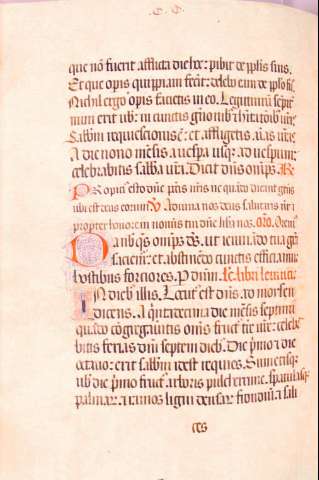 que nō fuerit afflicta die hac: pibit de pplis suis.
Et que opis quippiam fecit: delebo eum de pplo suo
Nichil ergo opis facietis in eo. Legitimū sempit
num erit vob: in cunctis gñonib: ⁊ hītatōib: uris
Sabbm requiecionis ē: et affligetis aīas uras
A die nono mēsis a uespa usqz ad uesperum
celebrabitis sabba ura. Dicit dñs omips. Re
Propici esto dñe pctis nris ne quādo dicant gñs
ubi est deus eorum. Adiuua nos deus salutaris nr ⁊
propter honorem nominis tui dñe libera nos. oro. Orem
Da nobis qs omps ds. ut ieiunādo tua grā
saciemur: et abstinēdo cunctis efficiamur
hostibus forciores. P dnm. Lc libri leuitici
In dieb illis. Locut est dñs ad moysen
dicens. A quitadecima die mēsis septimi
quādo cōgregaueritis oms fruct tre ure: celebra
bitis ferias dni septem dieb. Die pimo ⁊ die
octauo: erit sabbm id est requies. Sumetisqz
uob die pimo fruct arboris pulcherrime. spatulasqz
palmar. ⁊ ramos ligni densar frondium. ⁊ sali
ces